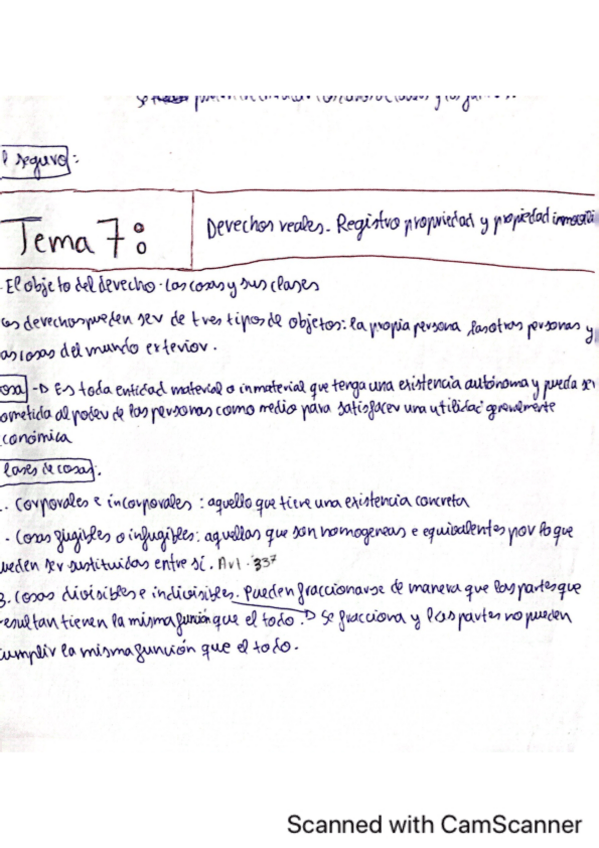 seguro:
Tema 7:
Derechos reales. Registro propriedad y propiedad
El objeto del derecho. Las cosas y sus clases
derechos pueden ser de tres tipos de objetos: la propia persona, las otras personas y
as cosas del mundo exterior.
osa -D Es toda entidad material o inmaterial que tenga una existencia autónoma y pueda ser
ometida al poder de las personas como medio para satisfacer una utilidad generalmente
conómica
lases de cosas.
. Corporales e incorporales: aquello que tiene una existencia concreta
. Cosas fugibles o infugibles: aquellas que son homogeneas e equivalentes por lo que
ueden ser sustituidas entre sí. Art. 337
3. Cosas divisibles e indivisibles. Pueden fraccionarse de manera que las partes que
resultan tienen la misma función que el todo. D Se fracciona y las partes no pueden
cumplir la misma función que el todo.
Scanned with CamScanner